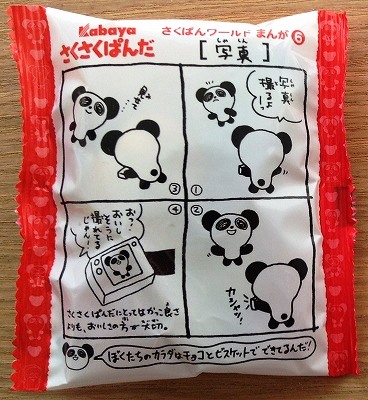 Kabaya
さくさくぱんだ
さくぱんワールド まんが⑥
[写真]
しゃしん
①
写真
撮るよ!!
しゃしん
と
②
カシャッ!
③
④
おっ!
おいし
そうに
撮れてる
じゃん!
と
さくさくぱんだにとってはかっこ良さ
よりも、おいしさの方が大切。
ぼくたちのカラダはチョコとビスケットでできてるんだ!